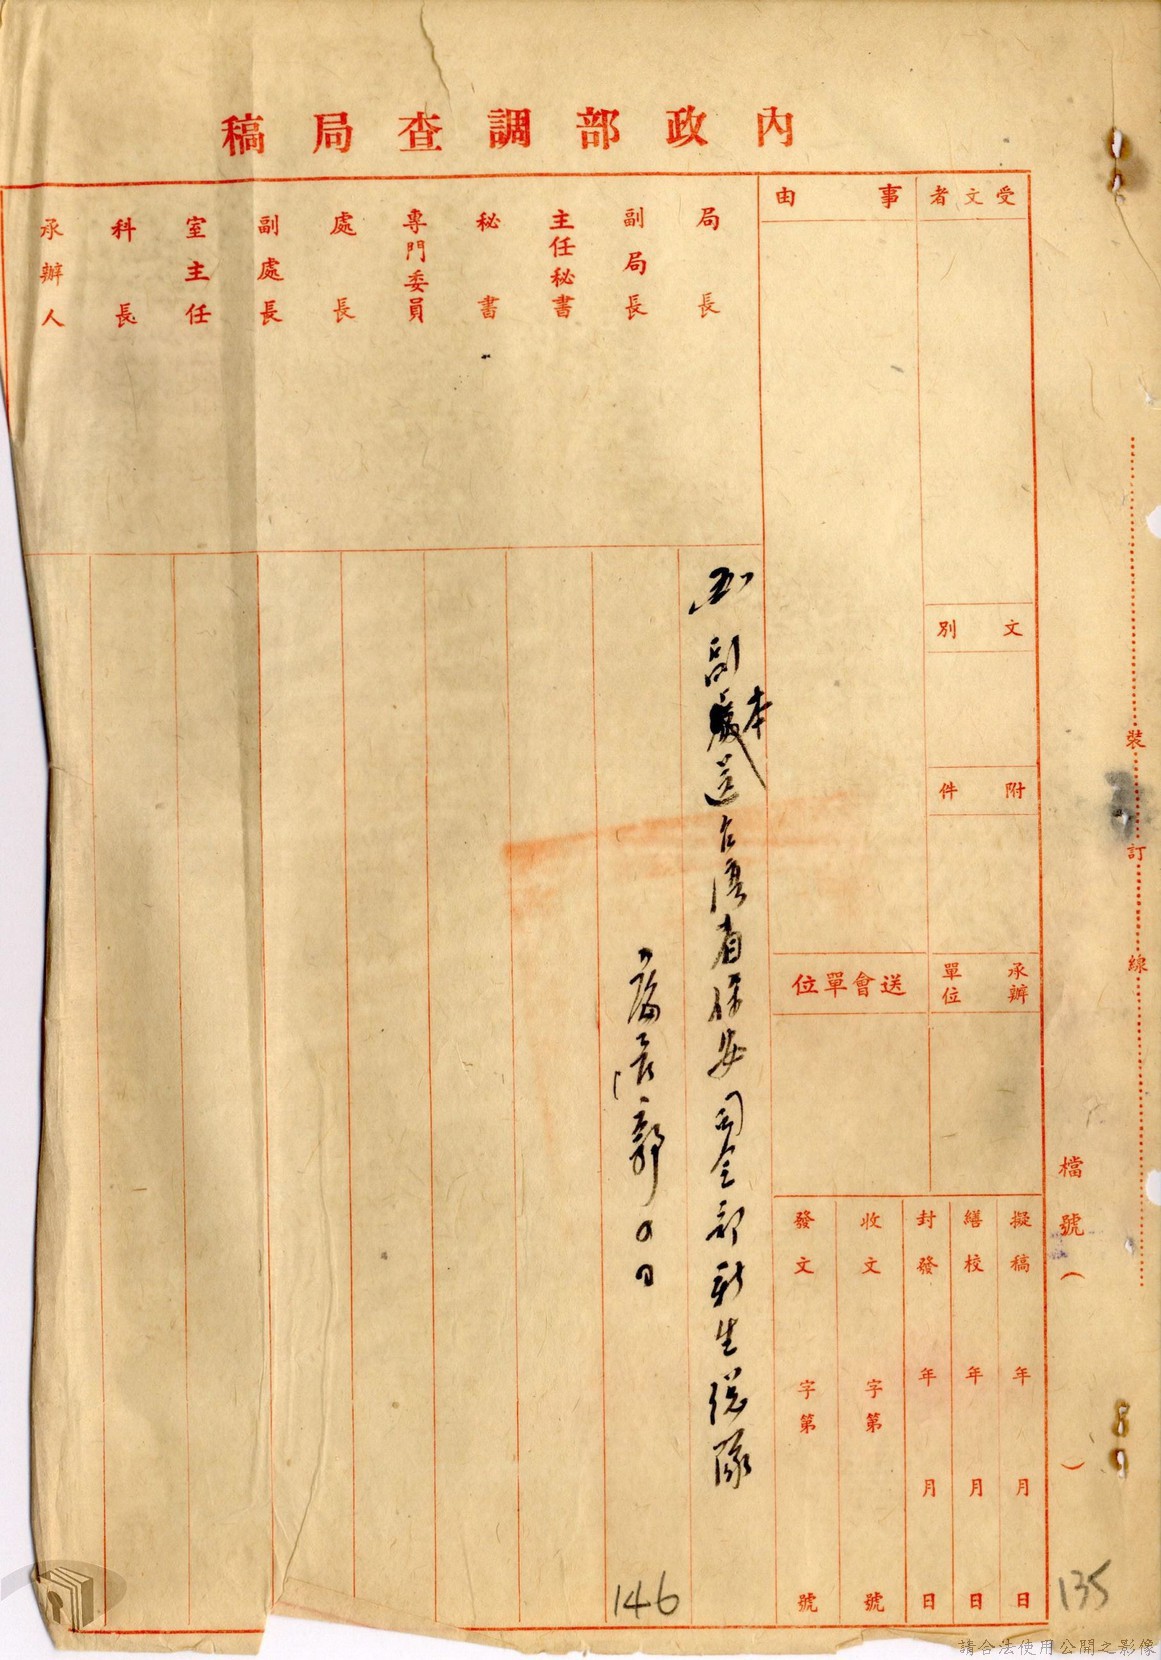 內政部調查局稿
受文者
事由
文別
附件
承辦單位
送會單位
擬稿 年 月 日
繕校 年 月 日
封發 年 月 日
收文 字第 號
發文 字第 號
檔號（ ）
裝訂線
局長
副局長
主任秘書
秘書
專門委員
處長
副處長
室主任
科長
承辦人
五 副本送台灣省保安司令部新生總隊
郭
146
135
請合法使用公開之影像